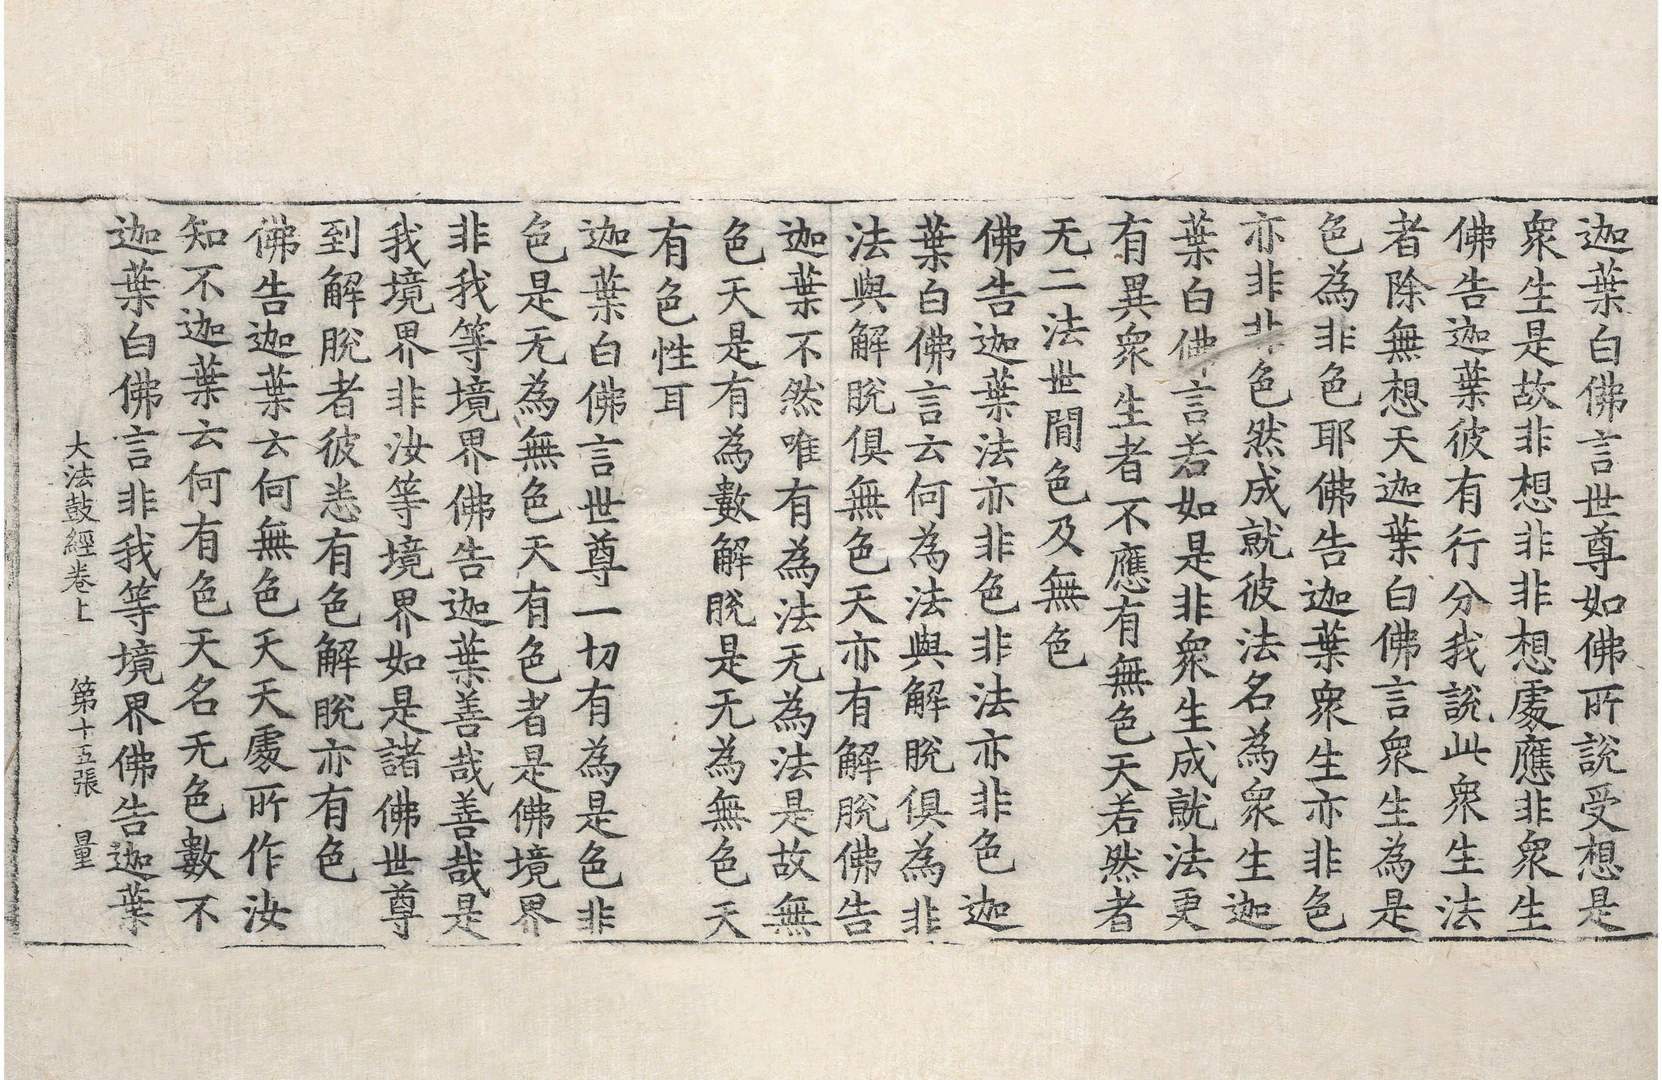 迦葉白佛言世尊如佛所說受想是
衆生是故非想非非想處應非衆生
佛告迦葉彼有行分我說此衆生法
者除無想天迦葉白佛言衆生為是
色為非色耶佛告迦葉衆生亦非色
亦非非色然成就彼法名為衆生迦
葉白佛言若如是非衆生成就法更
有異衆生者不應有無色天若然者
无二法世間色及無色
佛告迦葉法亦非色非法亦非色迦
葉白佛言云何為法與解脫俱為非
法與解脫俱無色天亦有解脫佛告
迦葉不然唯有為法无為法是故無
色天是有為數解脫是无為無色天
有色性耳
迦葉白佛言世尊一切有為是色非
色是无為無色天有色者是佛境界
非我等境界佛告迦葉善哉善哉是
我境界非汝等境界如是諸佛世尊
到解脫者彼悉有色解脫亦有色
佛告迦葉云何無色天天處所作汝
知不迦葉云何有色天名无色數不
迦葉白佛言非我等境界佛告迦葉
大法鼓經卷上 第十五張 量